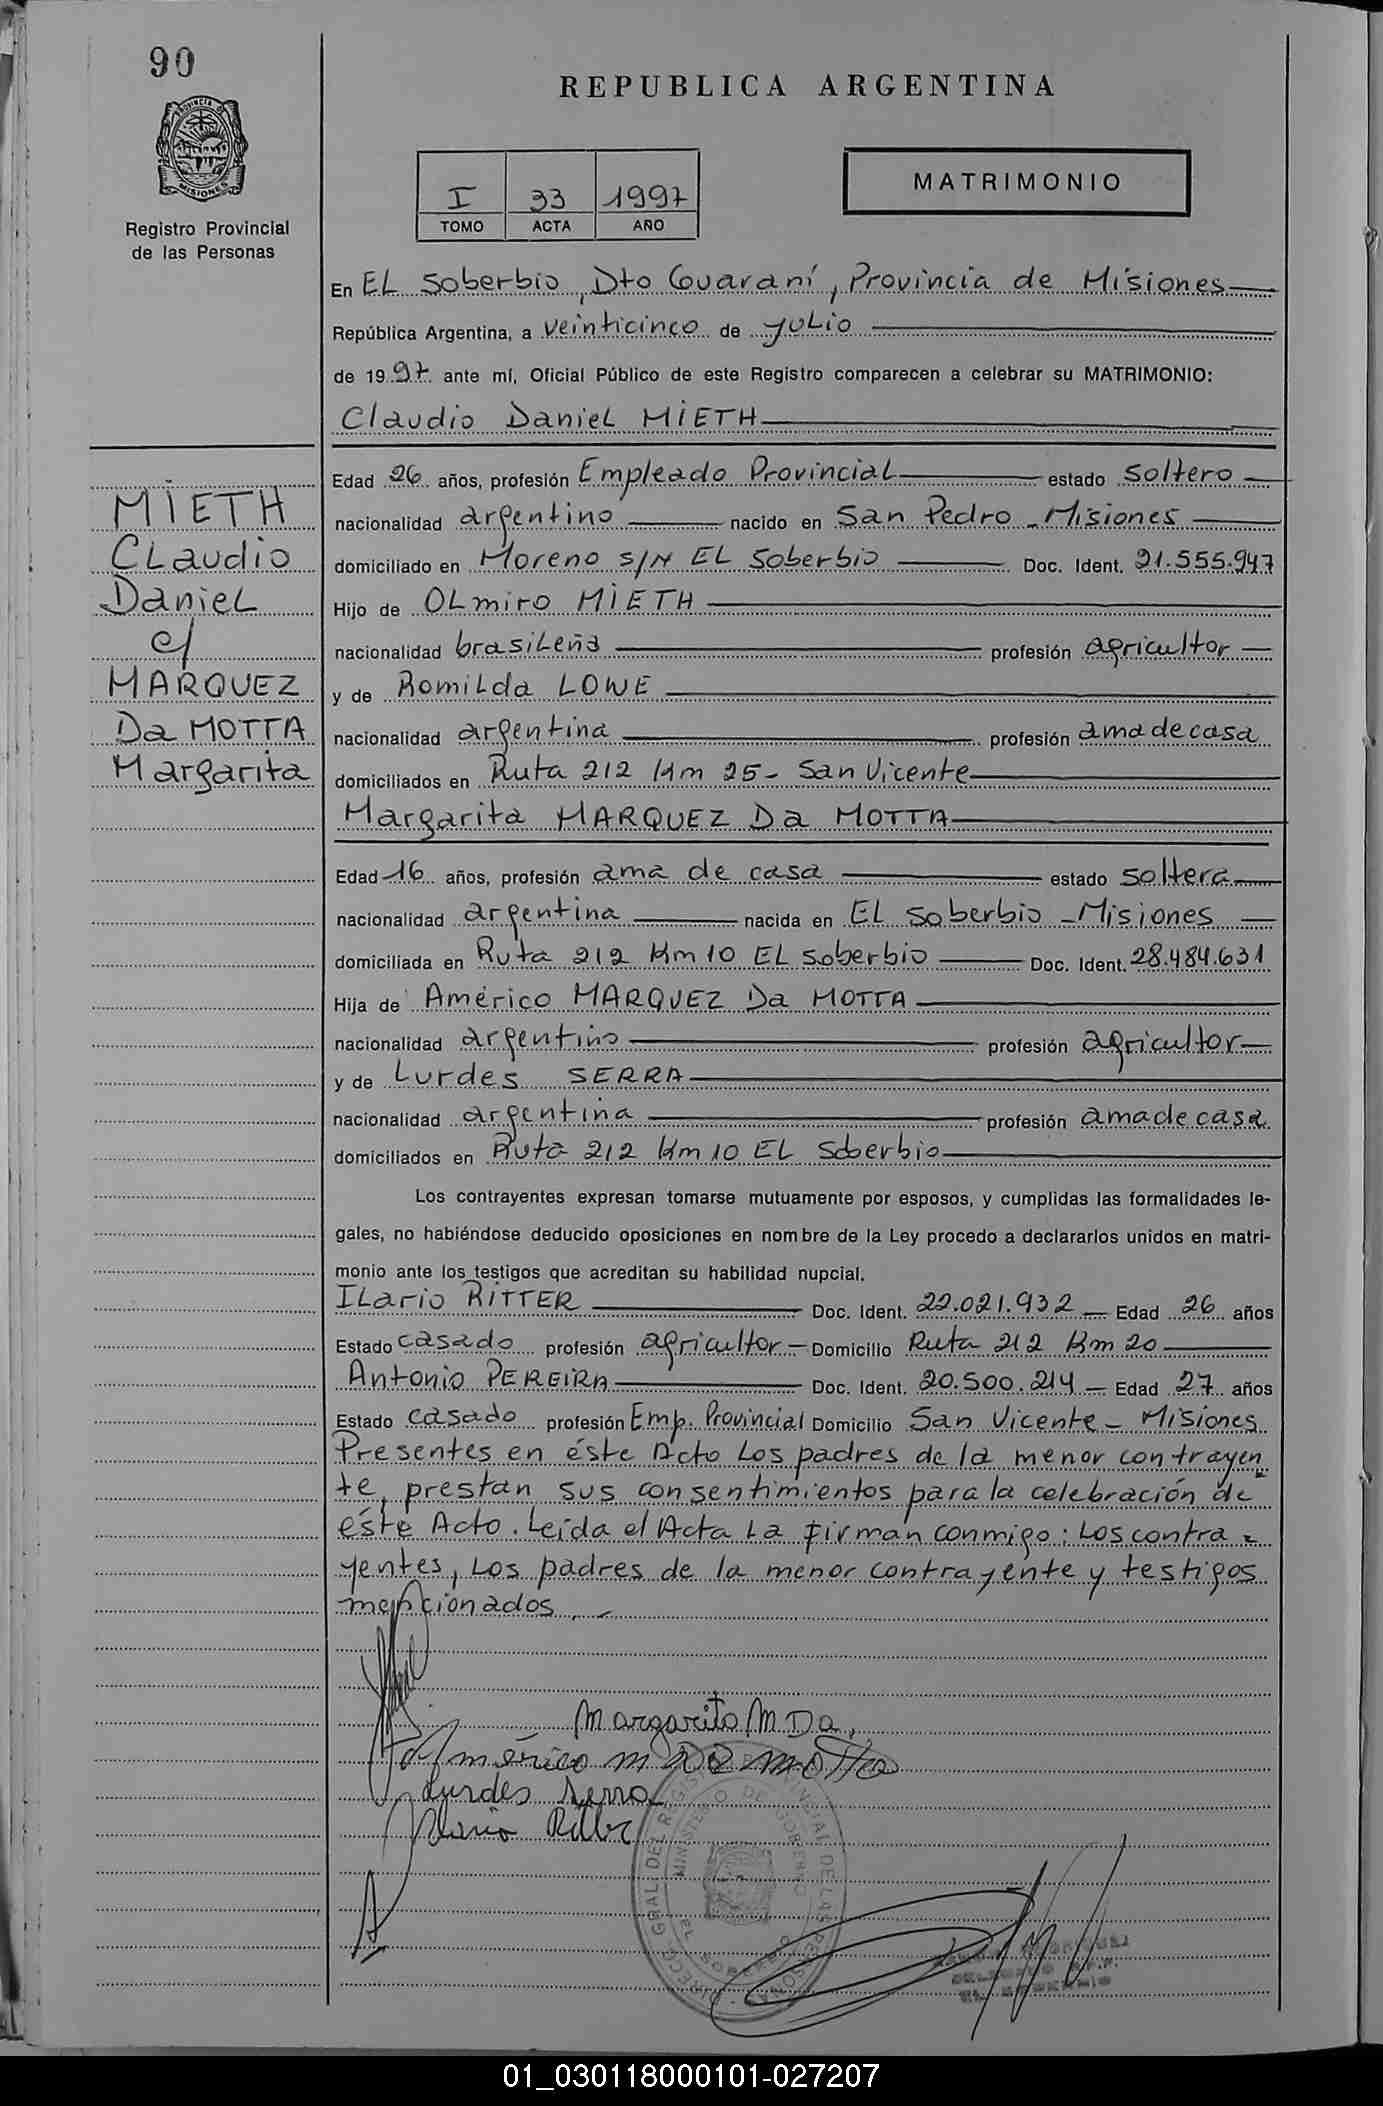 90
REPUBLICA ARGENTINA
MATRIMONIO
I 33 1997
TOMO ACTA AÑO
PROVINCIA DE MISIONES
Registro Provincial
de las Personas
En EL Soberbio, Dto Guaraní, Provincia de Misiones
República Argentina, a veinticinco de yulio
de 1997 ante mí, Oficial Público de este Registro comparecen a celebrar su MATRIMONIO:
Claudio Daniel MIETH
Edad 26 años, profesión Empleado Provincial estado soltero
nacionalidad argentino nacido en San Pedro - Misiones
domiciliado en Moreno s/N EL Soberbio Doc. Ident. 21.555.947
Hijo de OLmiro MIETH
nacionalidad brasileña profesión agricultor
y de Romilda LOWE
nacionalidad argentina profesión ama de casa
domiciliados en Ruta 212 Km 25 - San Vicente
MIETH
Claudio
Daniel
c/
MARQUEZ
Da MOTTA
Margarita
Margarita MARQUEZ Da MOTTA
Edad 16 años, profesión ama de casa estado soltera
nacionalidad argentina nacida en EL Soberbio - Misiones
domiciliada en Ruta 212 Km 10 EL Soberbio Doc. Ident. 28.484.631
Hija de Américo MARQUEZ Da MOTTA
nacionalidad argentino profesión agricultor
y de Lurdes SERRA
nacionalidad argentina profesión ama de casa
domiciliados en Ruta 212 Km 10 EL Soberbio
Los contrayentes expresan tomarse mutuamente por esposos, y cumplidas las formalidades le-
gales, no habiéndose deducido oposiciones en nombre de la Ley procedo a declararlos unidos en matri-
monio ante los testigos que acreditan su habilidad nupcial.
ILario RITTER Doc. Ident. 22.021.932 Edad 26 años
Estado casado profesión agricultor Domicilio Ruta 212 Km 20
Antonio PEREIRA Doc. Ident. 20.500.214 Edad 27 años
Estado casado profesión Emp. Provincial Domicilio San Vicente - Misiones
Presentes en éste Acto Los padres de la menor contrayen
te, prestan sus consentimientos para la celebración de
éste Acto. Leída el Acta La firman conmigo: Los contra-
yentes, Los padres de la menor contrayente y testigos
mencionados.
Margarita M Da.
Américo M Da Motta
Lurdes Serra
Ilario Ritter
EL SOBERBIO
01_030118000101-027207